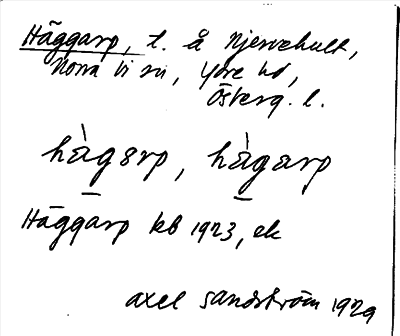 Häggarp, t. å Njervehult,
Norra Vi sn, Ydre hd,
Österg. l.
hàgarp, hàgarp
Häggarp kb 1923, ek
Axel Sandström 1929